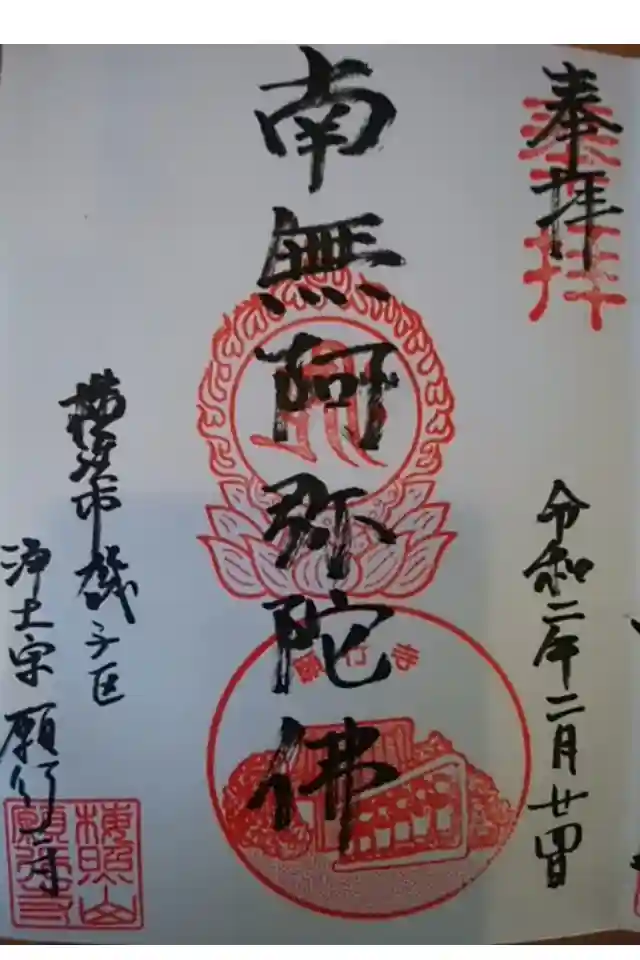 奉拝
奉拝
令和二年二月廿四日
南無阿弥陀佛
願行寺
横浜市磯子区
浄土宗 願行寺
横照山
願行寺